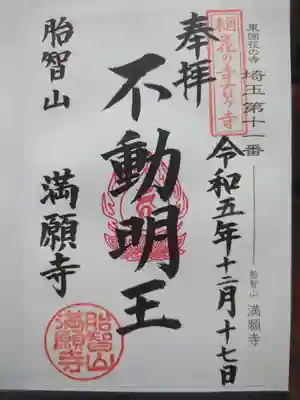 東国花の寺
埼玉第十一番
胎智山 満願寺
東国花の寺百ヶ寺
奉拝
令和五年十二月十七日
不動明王
胎智山 満願寺
胎智山
満願寺